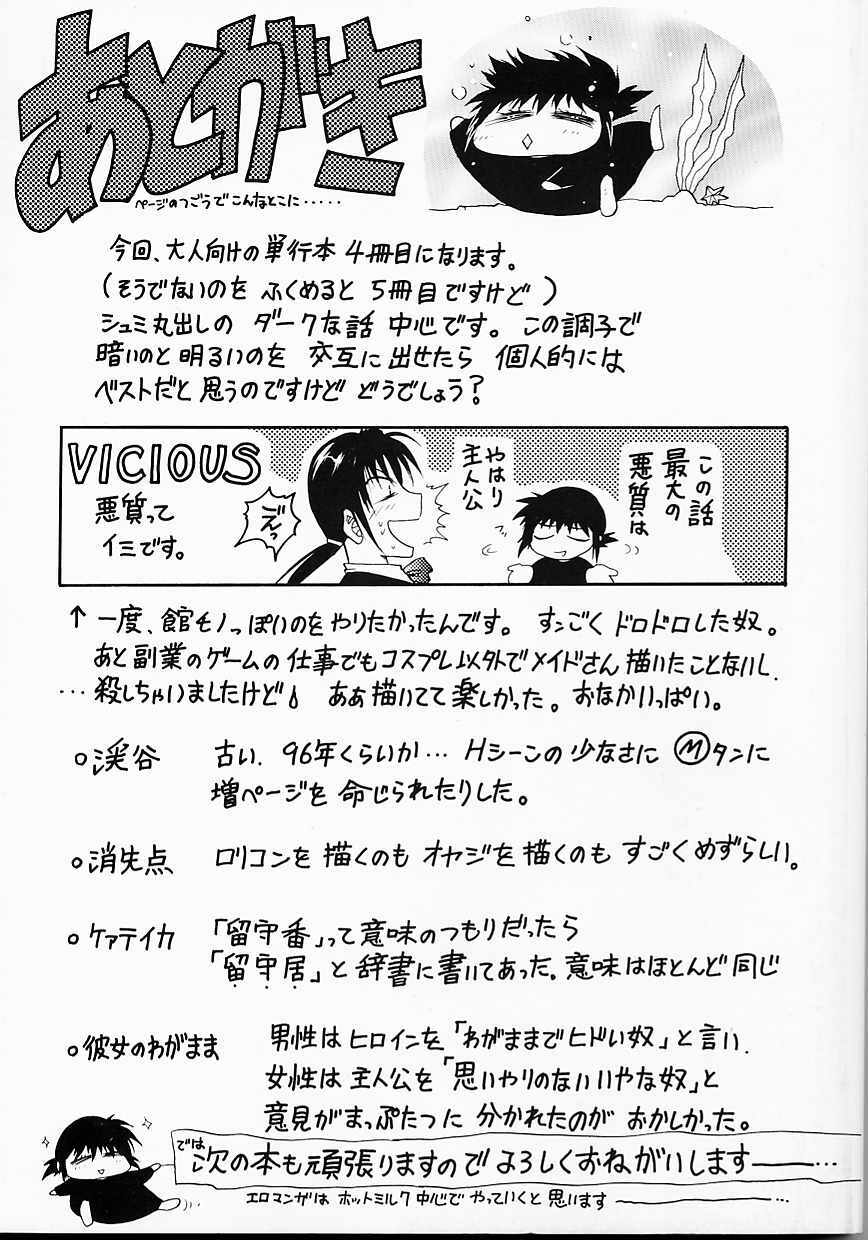 あとがき
ページのつごうでこんなとこに・・・・・
今回、大人向けの単行本 4冊目になります。
(そうでないのを ふくめると 5冊目ですけど)
シュミ丸出しの ダークな話 中心です。この調子で
暗いのと 明るいのを 交互に 出せたら 個人的には
ベストだと 思うのですけど どうでしょう?
VICIOUS
悪質って
イミです。
この話
最大の
悪質は
やはり
主人公
↑ 一度、館モノっぽいのをやりたかったんです。 すンごく ドロドロした奴。
あと副業のゲームの仕事でもコスプレ以外でメイドさん描いたことないし.
…殺しちゃいましたけど ああ描いてて楽しかった。おなかいっぱい。
○渓谷 古い. 96年くらいか… Hシーンの少なさに Ⓜタンに
増ページを 命じられたりした。
○消失点 ロリコンを 描くのも オヤジを 描くのも すごくめずらしい。
○ケァテイカ 「留守番」って意味のつもりだったら
「留守居」と 辞書に書いてあった。意味はほとんど同じ
○彼女のわがまま 男性はヒロインを「わがままでヒドい奴」と言い.
女性は 主人公を「思いやりのないいやな奴」と
意見がまっぷたつに 分かれたのが おかしかった。
では 次の本も頑張りますので よろしくおねがいします――…
エロマンガは ホットミルク 中心で やっていくと 思います――…